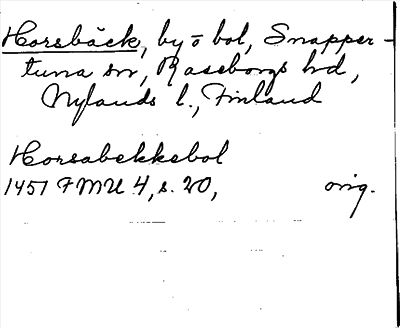 Horsbäck, by o bol, Snapper-
tuna sn, Raseborgs hd,
Nylands l., Finland
Horsabekkebol
1451 FMU 4, s. 20, orig.